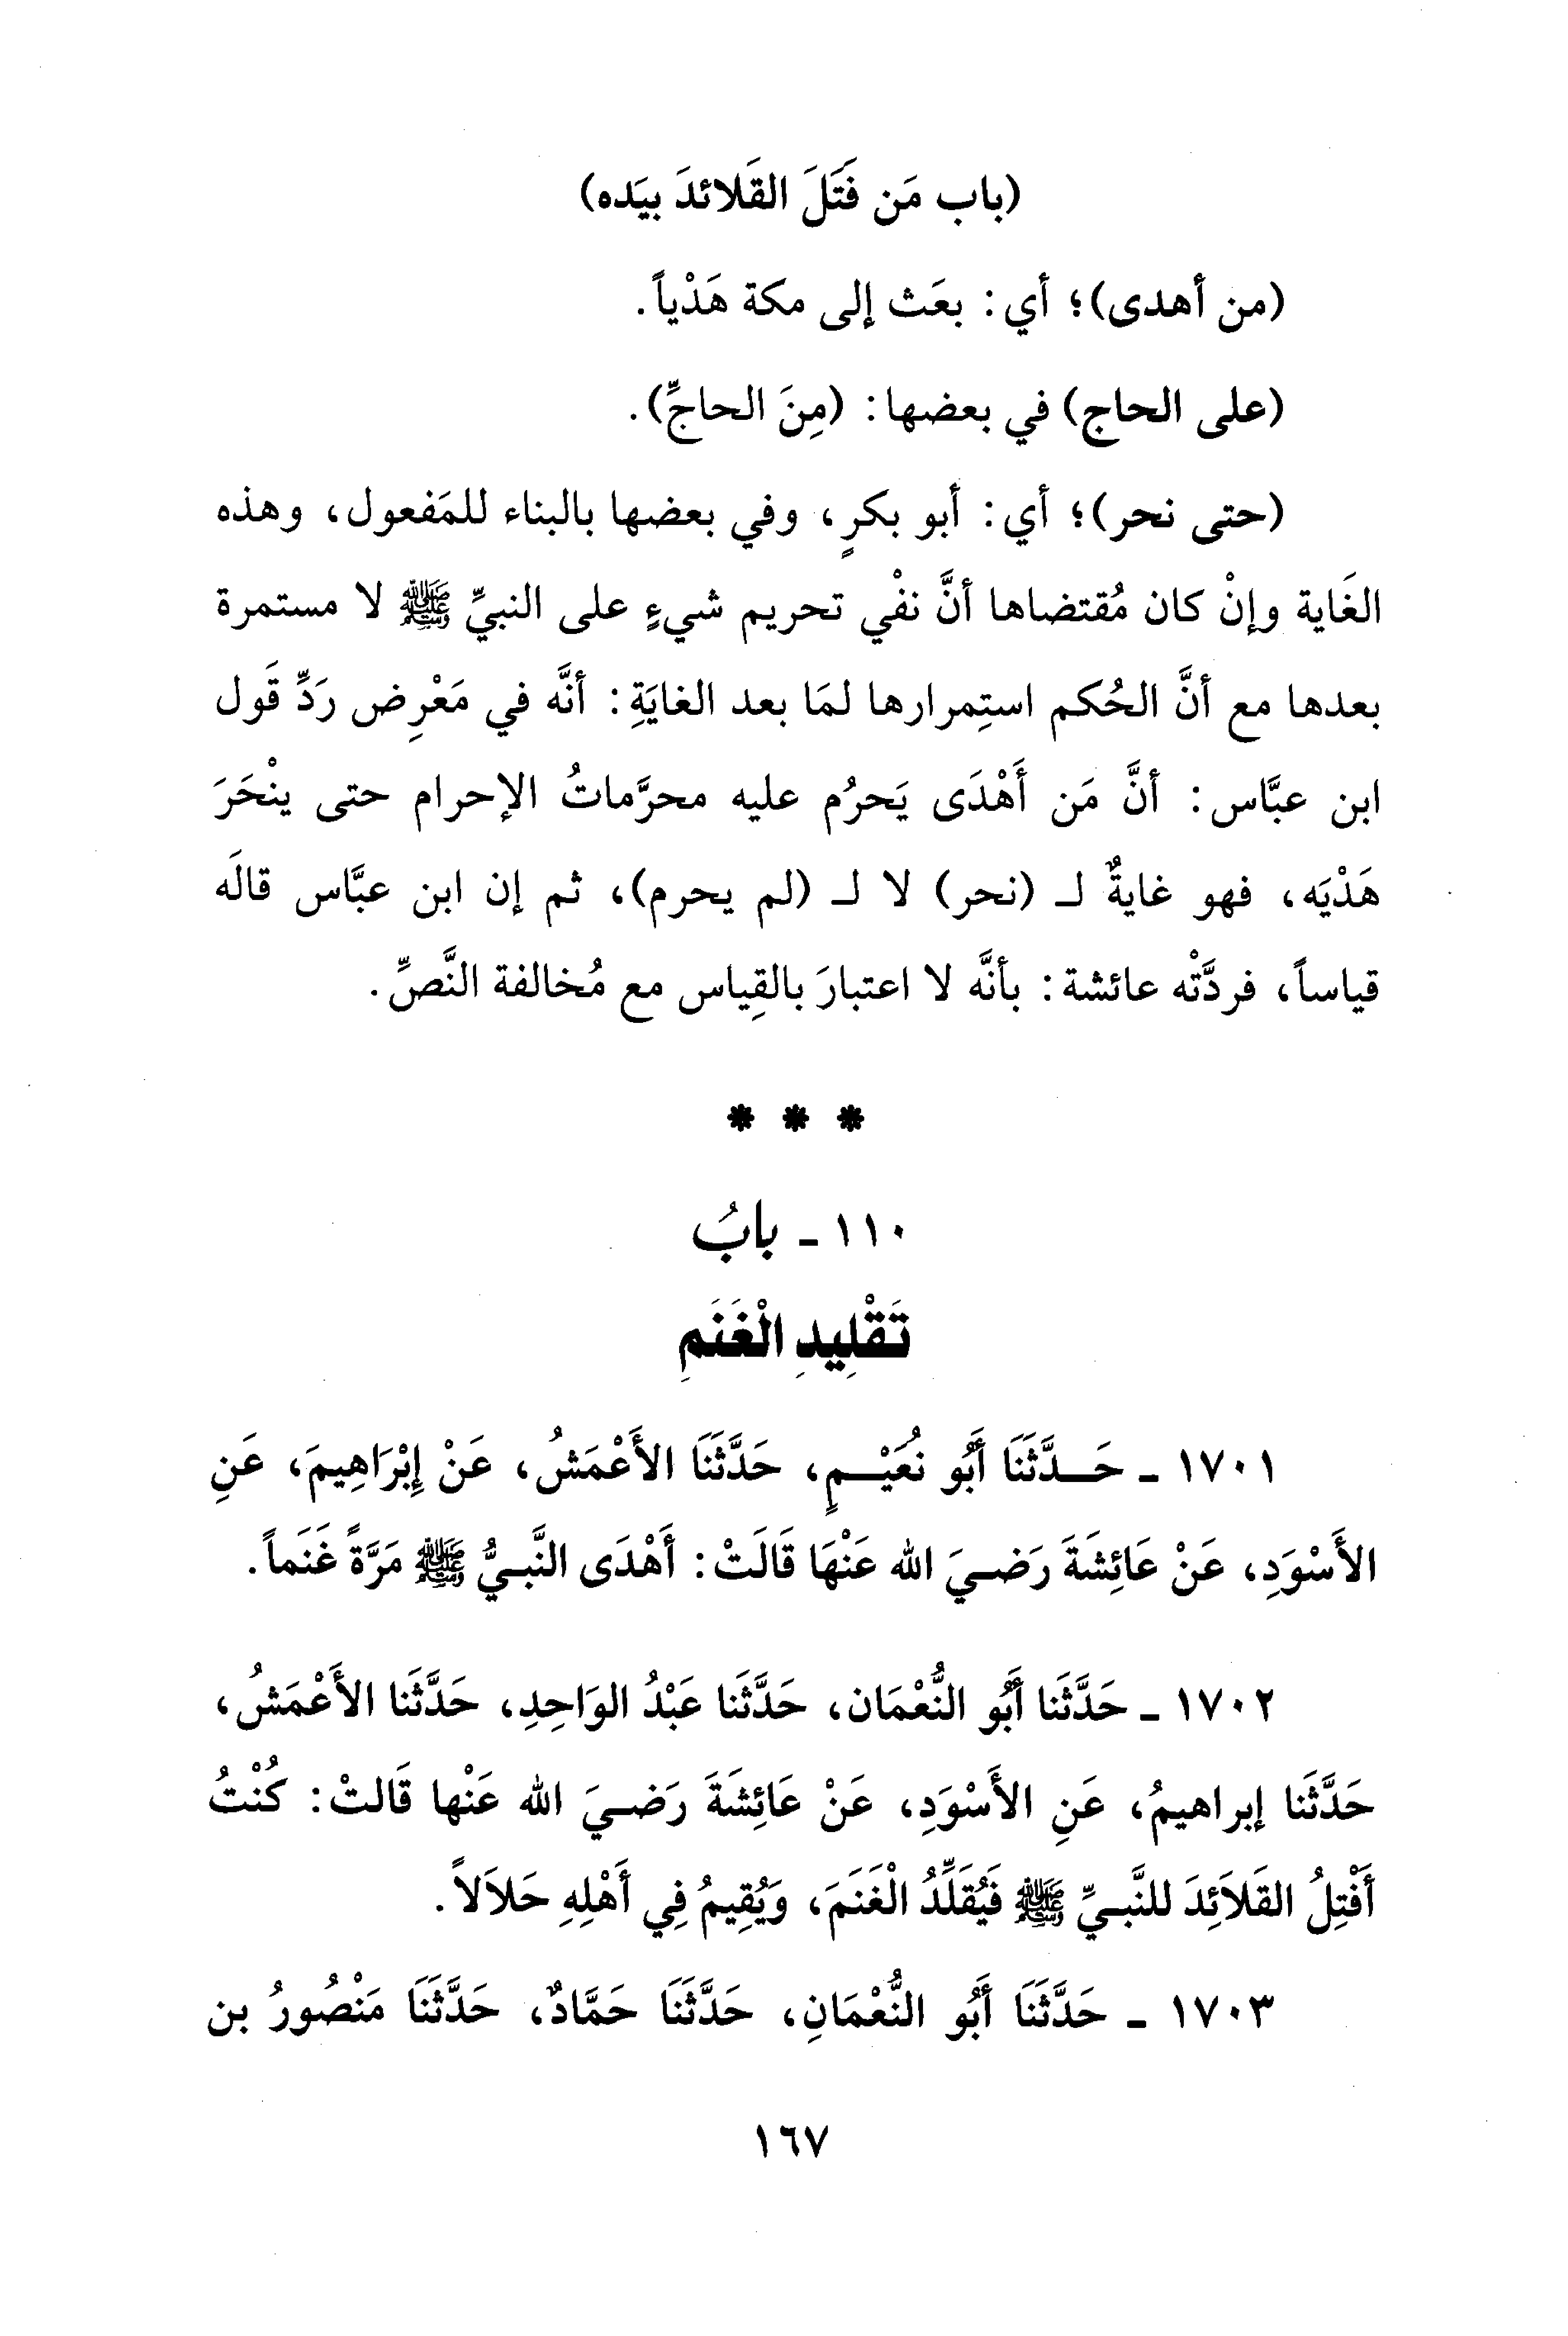 (باب مَن فَتَلَ القَلائدَ بيَده)
(من أهدى)؛ أي: بعَث إلى مكة هَدْياً.
(على الحاج) في بعضها: (مِنَ الحاجِّ).
(حتى نحر)؛ أي: أبو بكرٍ، وفي بعضها بالبناء للمَفعول، وهذه
الغَاية وإنْ كان مُقتضاها أنَّ نفْي تحريم شيءٍ على النبيِّ ﷺ لا مستمرة
بعدها مع أنَّ الحُكم استِمرارها لمَا بعد الغايَةِ: أنَّه في مَعْرِض رَدِّ قَول
ابن عبَّاس: أنَّ مَن أَهْدَى يَحرُم عليه محرَّماتُ الإحرام حتى ينْحَرَ
هَدْيَه، فهو غايةٌ لـ (نحر) لا لـ (لم يحرم)، ثم إن ابن عبَّاس قالَه
قياساً، فردَّتْه عائشة: بأنَّه لا اعتبارَ بالقِياس مع مُخالفة النَّصِّ.
* * *
١١٠ - بابُ
تَقْلِيدِ الْغَنَمِ
١٧٠١ - حَدَّثَنَا أَبُو نُعَيْمٍ، حَدَّثَنَا الأَعْمَشُ، عَنْ إِبْرَاهِيمَ، عَنِ
الأَسْوَدِ، عَنْ عَائِشَةَ رَضيَ الله عَنْهَا قَالَتْ: أَهْدَى النَّبيُّ ﷺ مَرَّةً غَنَماً.
١٧٠٢ - حَدَّثَنا أَبُو النُّعْمَان، حَدَّثَنا عَبْدُ الوَاحِدِ، حَدَّثَنا الأَعْمَشُ،
حَدَّثَنا إبراهيمُ، عَنِ الأَسْوَدِ، عَنْ عَائِشَةَ رَضيَ الله عَنْها قَالتْ: كُنْتُ
أَفْتِلُ القَلاَئِدَ للنَّبيِّ ﷺ فَيُقَلِّدُ الْغَنَمَ، وَيُقِيمُ فِي أَهْلِهِ حَلاَلاً.
١٧٠٣ - حَدَّثَنَا أَبُو النُّعْمَانِ، حَدَّثَنَا حَمَّادٌ، حَدَّثَنَا مَنْصُورُ بن
١٦٧